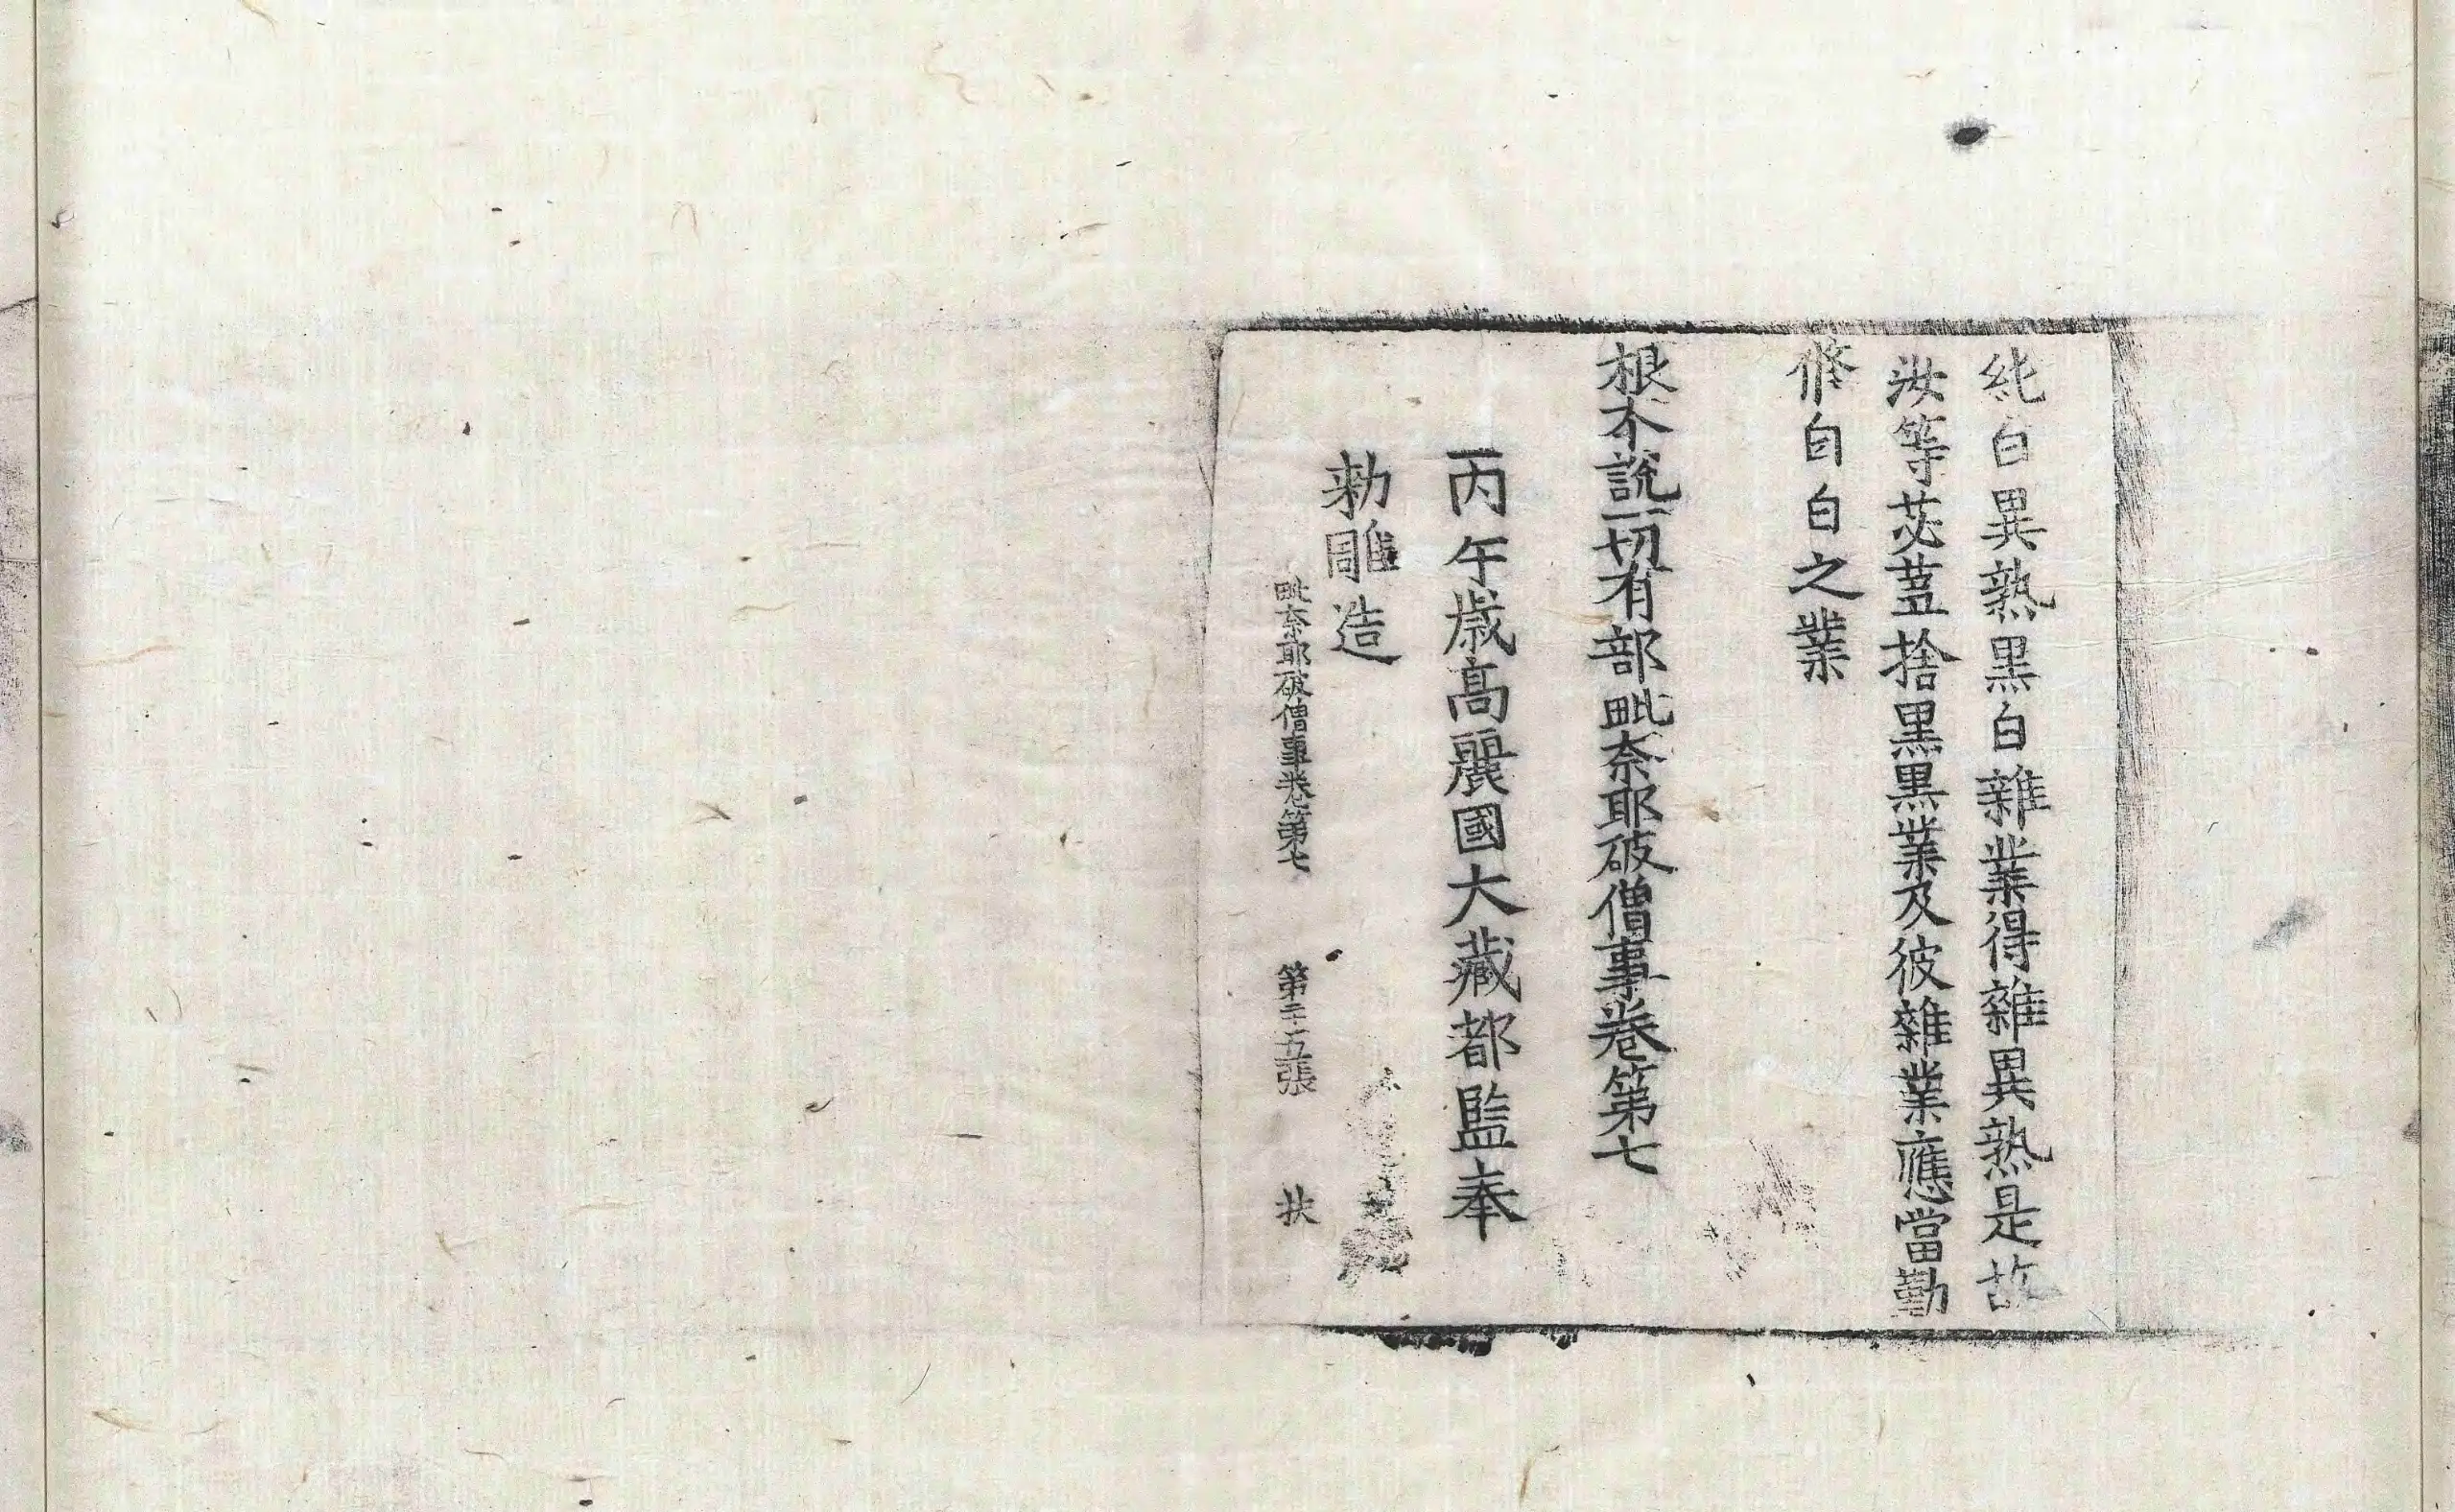 純白異熟黑白雜業得雜異熟是故
汝等苾蒭捨黑黑業及彼雜業應當勤
修自白之業
根本說一切有部毗奈耶破僧事卷第七
丙午歲高麗國大藏都監奉
勅雕造
毗奈耶破僧事卷第七 第二十五張 扶